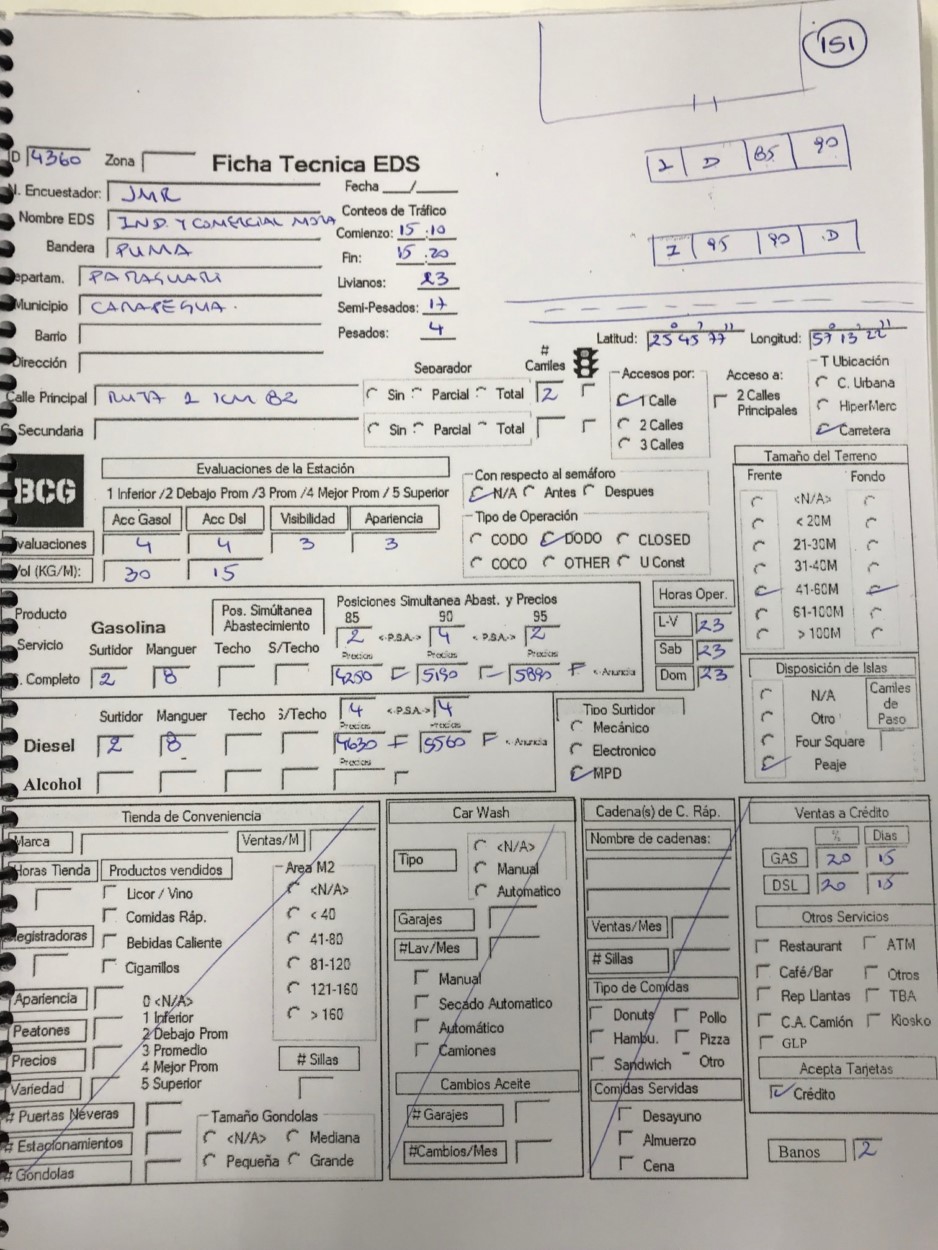 151
2 D 85 90
2 95 90 D
ID 4360 Zona Ficha Tecnica EDS
N. Encuestador: JMR Fecha __/__
Nombre EDS IND. Y COMERCIAL MORA Conteos de Tráfico
Bandera PUMA Comienzo: 15:10
Fin: 15:20
Departam. PARAGUARI Livianos: 23
Municipio CARAPEGUA. Semi-Pesados: 17
Barrio Pesados: 4
Latitud: 25° 45' 77" Longitud: 57° 13' 22"
Dirección
Separador # Carriles Accesos por: Acceso a: T Ubicación
Calle Principal RUTA 1 KM 82 Sin Parcial Total 2 1 Calle 2 Calles Principales C. Urbana
2 Calles HiperMerc
Secundaria Sin Parcial Total 3 Calles Carretera
BCG
Evaluaciones de la Estación
1 Inferior /2 Debajo Prom /3 Prom /4 Mejor Prom / 5 Superior
Acc Gasol Acc Dsl Visibilidad Apariencia
Evaluaciones 4 4 3 3
Vol (KG/M): 30 15
Con respecto al semáforo
N/A Antes Despues
Tipo de Operación
CODO DODO CLOSED
COCO OTHER U Const
Tamaño del Terreno
Frente Fondo
<N/A>
< 20M
21-30M
31-40M
41-60M
61-100M
> 100M
Producto Servicio Gasolina Pos. Simúltanea Abastecimiento Posiciones Simultanea Abast. y Precios
85 90 95
2 <-P.S.A.-> 4 <-P.S.A.-> 2
Surtidor Manguer Techo S/Techo Precios Precios Precios
. Completo 2 8 4250 5190 5890 F <-Anuncia
Horas Oper.
L-V 23
Sab 23
Dom 23
Surtidor Manguer Techo S/Techo 4 <-P.S.A.-> 4
Precios Precios
Diesel 2 8 4630 F 5560 F <-Anuncia
Precios
Alcohol
Tipo Surtidor
Mecánico
Electronico
MPD
Disposición de Islas
N/A Carriles de Paso
Otro
Four Square
Peaje
Tienda de Conveniencia
Marca Ventas/M
Horas Tienda Productos vendidos Area M2
Licor / Vino <N/A>
Comidas Ráp. < 40
Registradoras Bebidas Caliente 41-80
Cigarrillos 81-120
121-160
> 160
Apariencia 0 <N/A>
1 Inferior
Peatones 2 Debajo Prom
Precios 3 Promedio # Sillas
4 Mejor Prom
Variedad 5 Superior
# Puertas Neveras Tamaño Gondolas
# Estacionamientos <N/A> Mediana
# Gondolas Pequeña Grande
Car Wash
Tipo <N/A>
Manual
Automatico
Garajes
#Lav/Mes
Manual
Secado Automatico
Automático
Camiones
Cambios Aceite
# Garajes
#Cambios/Mes
Cadena(s) de C. Ráp.
Nombre de cadenas:
Ventas/Mes
# Sillas
Tipo de Comidas
Donuts Pollo
Hambu. Pizza
Sandwich Otro
Comidas Servidas
Desayuno
Almuerzo
Cena
Ventas a Crédito
% Dias
GAS 20 15
DSL 20 15
Otros Servicios
Restaurant ATM
Café/Bar Otros
Rep Llantas TBA
C.A. Camión Kiosko
GLP
Acepta Tarjetas
Crédito
Banos 2